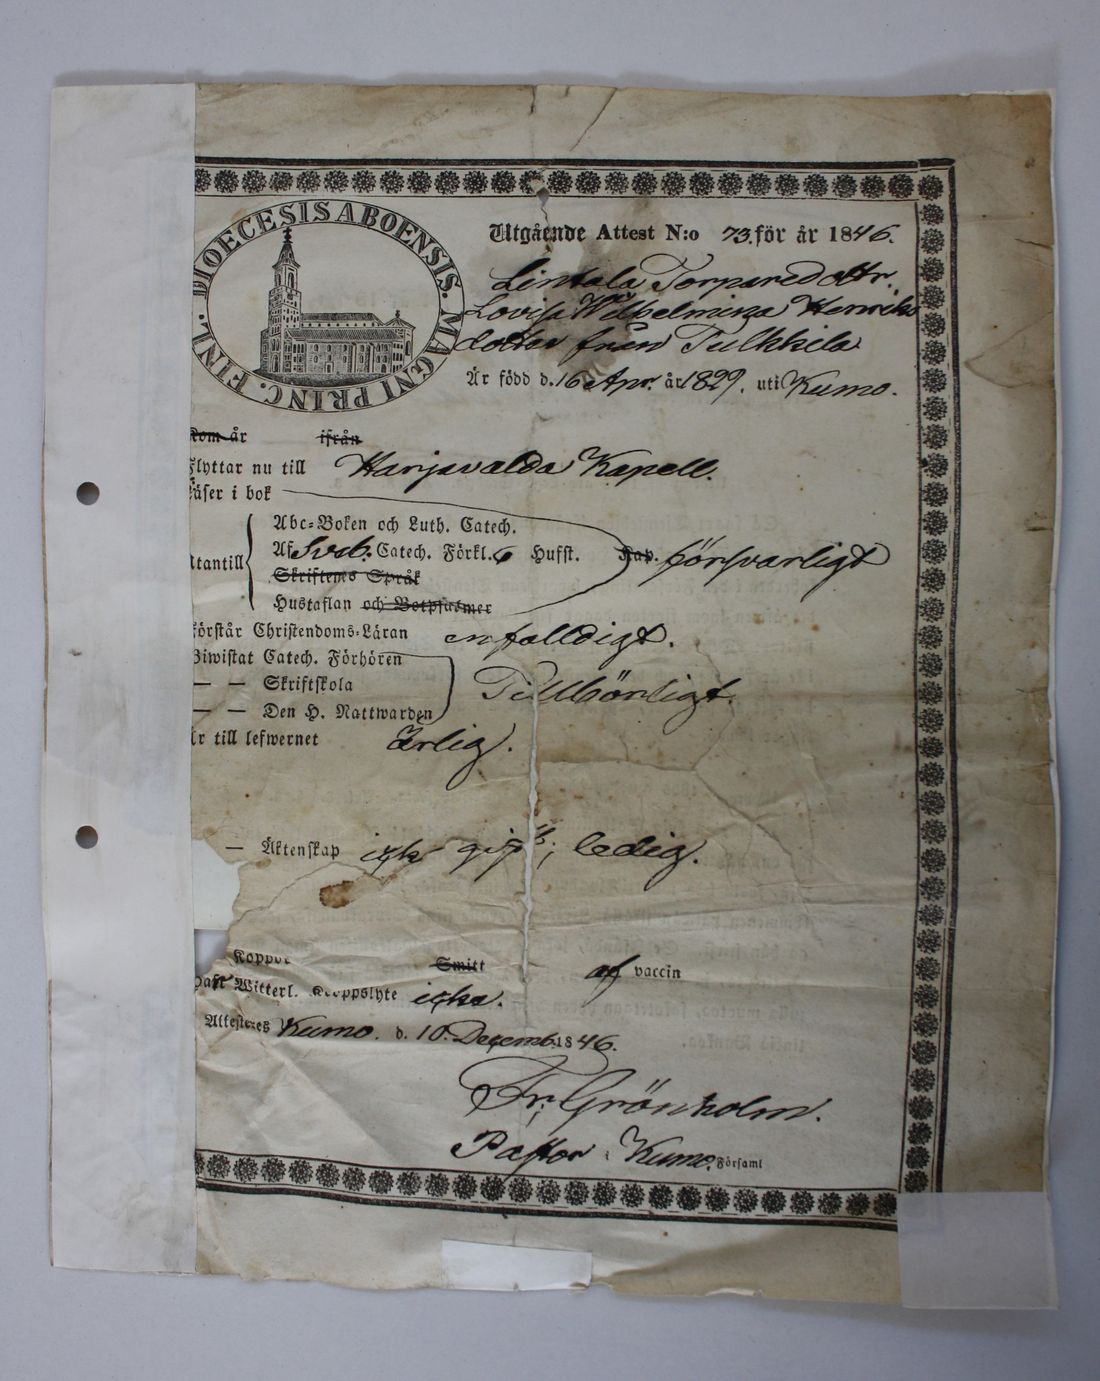 DIOECESIS ABOENSIS. MAGNI PRINC. FINL.
Utgående Attest N:o 73. för år 1846.
Lintala Torparedottr.
Lovisa Wilhelmina Henriks
dotter från Tulkkila
Är född d. 16 Apr. år 1829. uti Kumo.
Kom år ifrån
Flyttar nu till Harjavalda Kapell.
Läser i bok
Abc-Boken och Luth. Catech.
Af Sveb. Catech. Förkl. Hufst. Kap. försvarligt
utantill
Skriftenes Språk
Hustaflan och Botpsalmer
Förstår Christendoms-Läran enfalldigt.
Biwistat Catech. Förhören
— — Skriftskola Tillbörligt.
— — Den H. Nattwarden
Är till lefwernet ärlig.
— Äktenskap icke gift, ledig.
Koppor Smitt af vaccin
Haft Witterl. Kroppslyte icke.
Attesteres Kumo. d. 10. Decemb. 1846.
Fr. Grönholm.
Pastor i Kumo. Församl